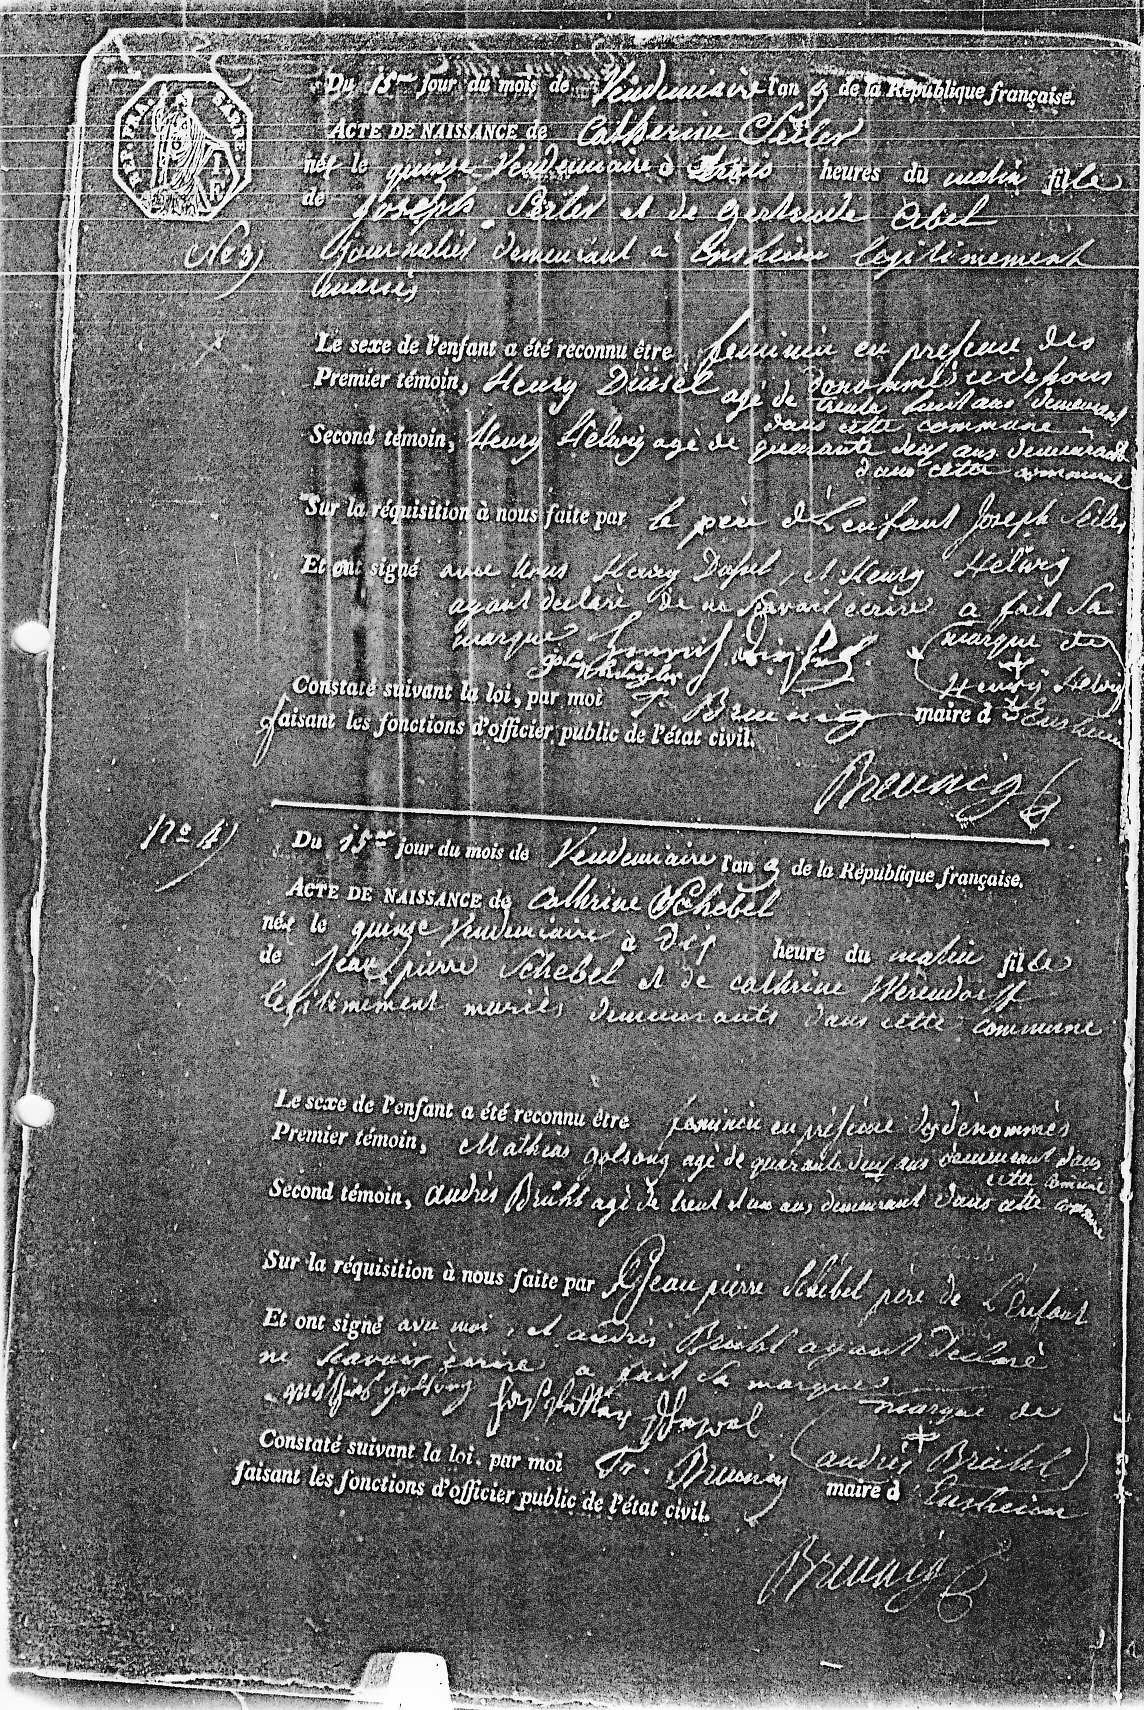 REP. FRA. SARRE.
Du 15me jour du mois de Vendemiaire l'an 9 de la République française.
ACTE DE NAISSANCE de Catherine Seiler
née le quinse Vendemiaire à trois heures du matin fille
de Joseph Seiler et de Gertrude Abel
No 3) journalier demeurant a Ensheim legitimement
mariés
Le sexe de l'enfant a été reconnu être feminin en presence des
Premier témoin, Henry Düssel agé de denommés ci dessous
trente huit ans demeurant
dans cette commune
Second témoin, Henry Helwig agé de quarante deux ans demeurant
dans cette commune
Sur la réquisition à nous faite par le père d l'enfant Joseph Seiler
Et ont signé avec nous Henry , et Henry Helwig
ayant declaré de ne savoir écrire a fait sa
marque marque de
Henry Helwig
Constaté suivant la loi, par moi Fr Breunig maire d Ensheim
faisant les fonctions d'officier public de l'état civil.
Breunig
No 4) Du 15me jour du mois de Vendemiaire l'an 9 de la République française.
ACTE DE NAISSANCE de Cathrine Schebel
née le quinse Vendemiaire à dix heure du matin fille
de Jean pierre Schebel et de cathrine Werendorff
legitimement mariés demeurants dans cette commune
Le sexe de l'enfant a été reconnu être feminin en présence des dénommés
Premier témoin, Mathias golsong agé de quarante deux ans demeurant dans
cette comune
Second témoin, andrés Brühl agé de trent et un ans demeurant dans cette commune
Sur la réquisition à nous faite par Jean pierre Schebel père de L'Enfant
Et ont signé avec moi, et andrés Brühl ayant declaré
ne scavoir écrire a fait sa marque
golsong marque de
andrés Brühl
Constaté suivant la loi, par moi Fr. Breunig maire d Ensheim
faisant les fonctions d'officier public de l'état civil.
Breunig